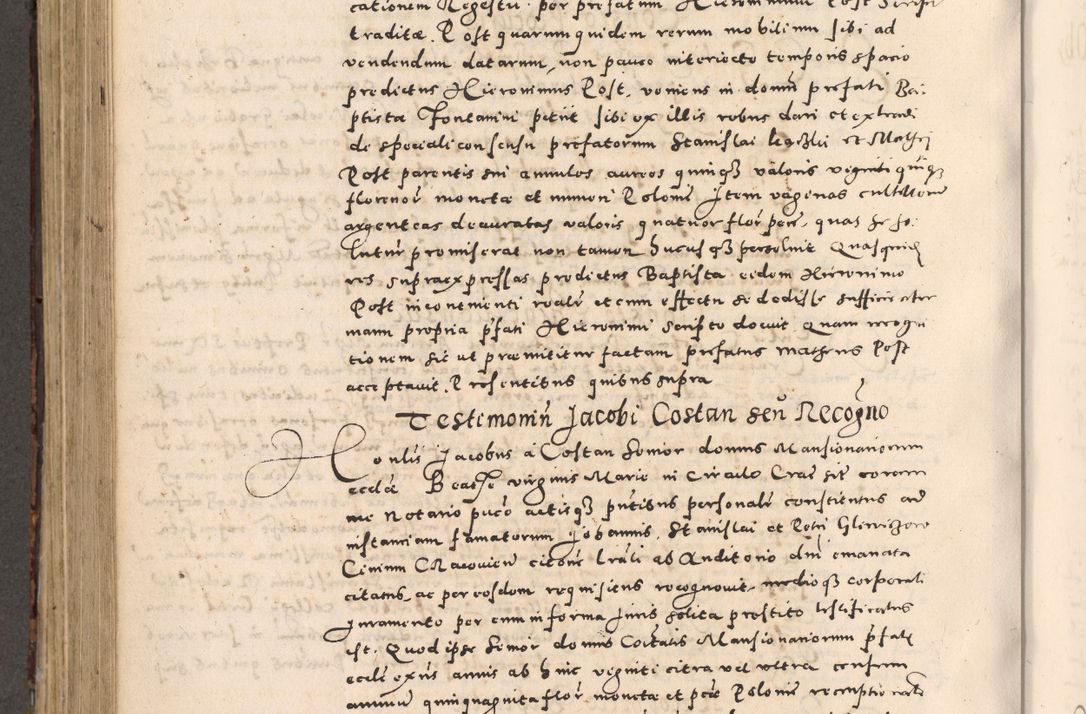 cationem Regestri per prefatum Hieronimum Post Scripto
traditæ. Post quarum quidem rerum mobilium sibi ad
vendendum datarum, non pauco interiecto temporis spacio
predictus Hieronimus Post, veniens in domū prefati Bap
ptista Fontanini petiit sibi ex illis rebus dari et extradi
de speciali consensu prefatorum Stanislai et Mathei
Post parentis sui annulos aureos quinqz valoris viginti quinqz
florenor monetæ et numeri Polonie Item vaginas cultellorum
argenteas deauratas valoris quatuor flor pecu. quas se so.
luturū promiserat non tamen hucusqz persoluit Quasquid
res supraexpressas predictus Baptista eidem Hieronimo
Post incontinenti realr et cum effectu se dedisse sufficienter
manu propria pfati Hieronimi scripto docuit Quam recogni
tionem sic ut præmittitur factam prefatus Matheus Post
acceptauit. Presentibus quibus supra
Testimoniū Jacobi Costan seu Recognō
Honlis Jacobus à Costan Senior domus Mansionariorum
eccliæ Beatae virginis Marie in Circulo Crac sit coram
me Notario puco actisqz pntibus personalr constitutus ad
instantiam famatorum Johannis, Stanislai et Petri
Civium Cracovien citone lrali ab Auditorio dni emanata
citatus, ac per eosdem requisitus recognouit medioqz corporali
Juramento per eum in forma Juris solita prestito testificatus
est. Quod ipse Senior domus Coitatis Mansionariorum pfati
eccliæ annis ab hinc viginti citra vel vltra censum
annuū quinquaginta flor monetæ et pecu Polonie